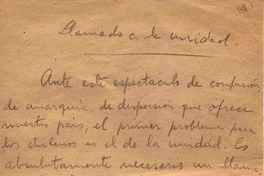 Llamado a la unidad.
Ante este espectáculo de confusión,
de anarquía, de dispersión que ofrece
nuestro país, el primer problema para
los chilenos es el de la unidad. Es
absolutamente necesario un llama